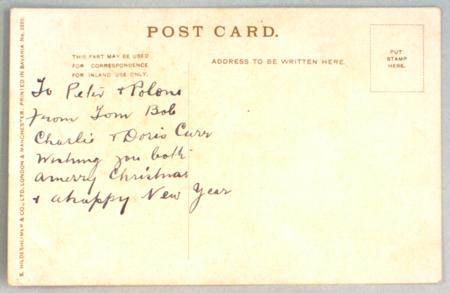 POST CARD.
THIS PART MAY BE USED
FOR CORRESPONDENCE
FOR INLAND USE ONLY.
ADDRESS TO BE WRITTEN HERE.
PUT
STAMP
HERE.
To Peter & Polono
From Tom Bob
Charlie & Doris Carr
Wishing you both
a merry Christmas
& a happy New Year
S. HILDESHEIMER & CO., LTD. LONDON & MANCHESTER. PRINTED IN BAVARIA No.